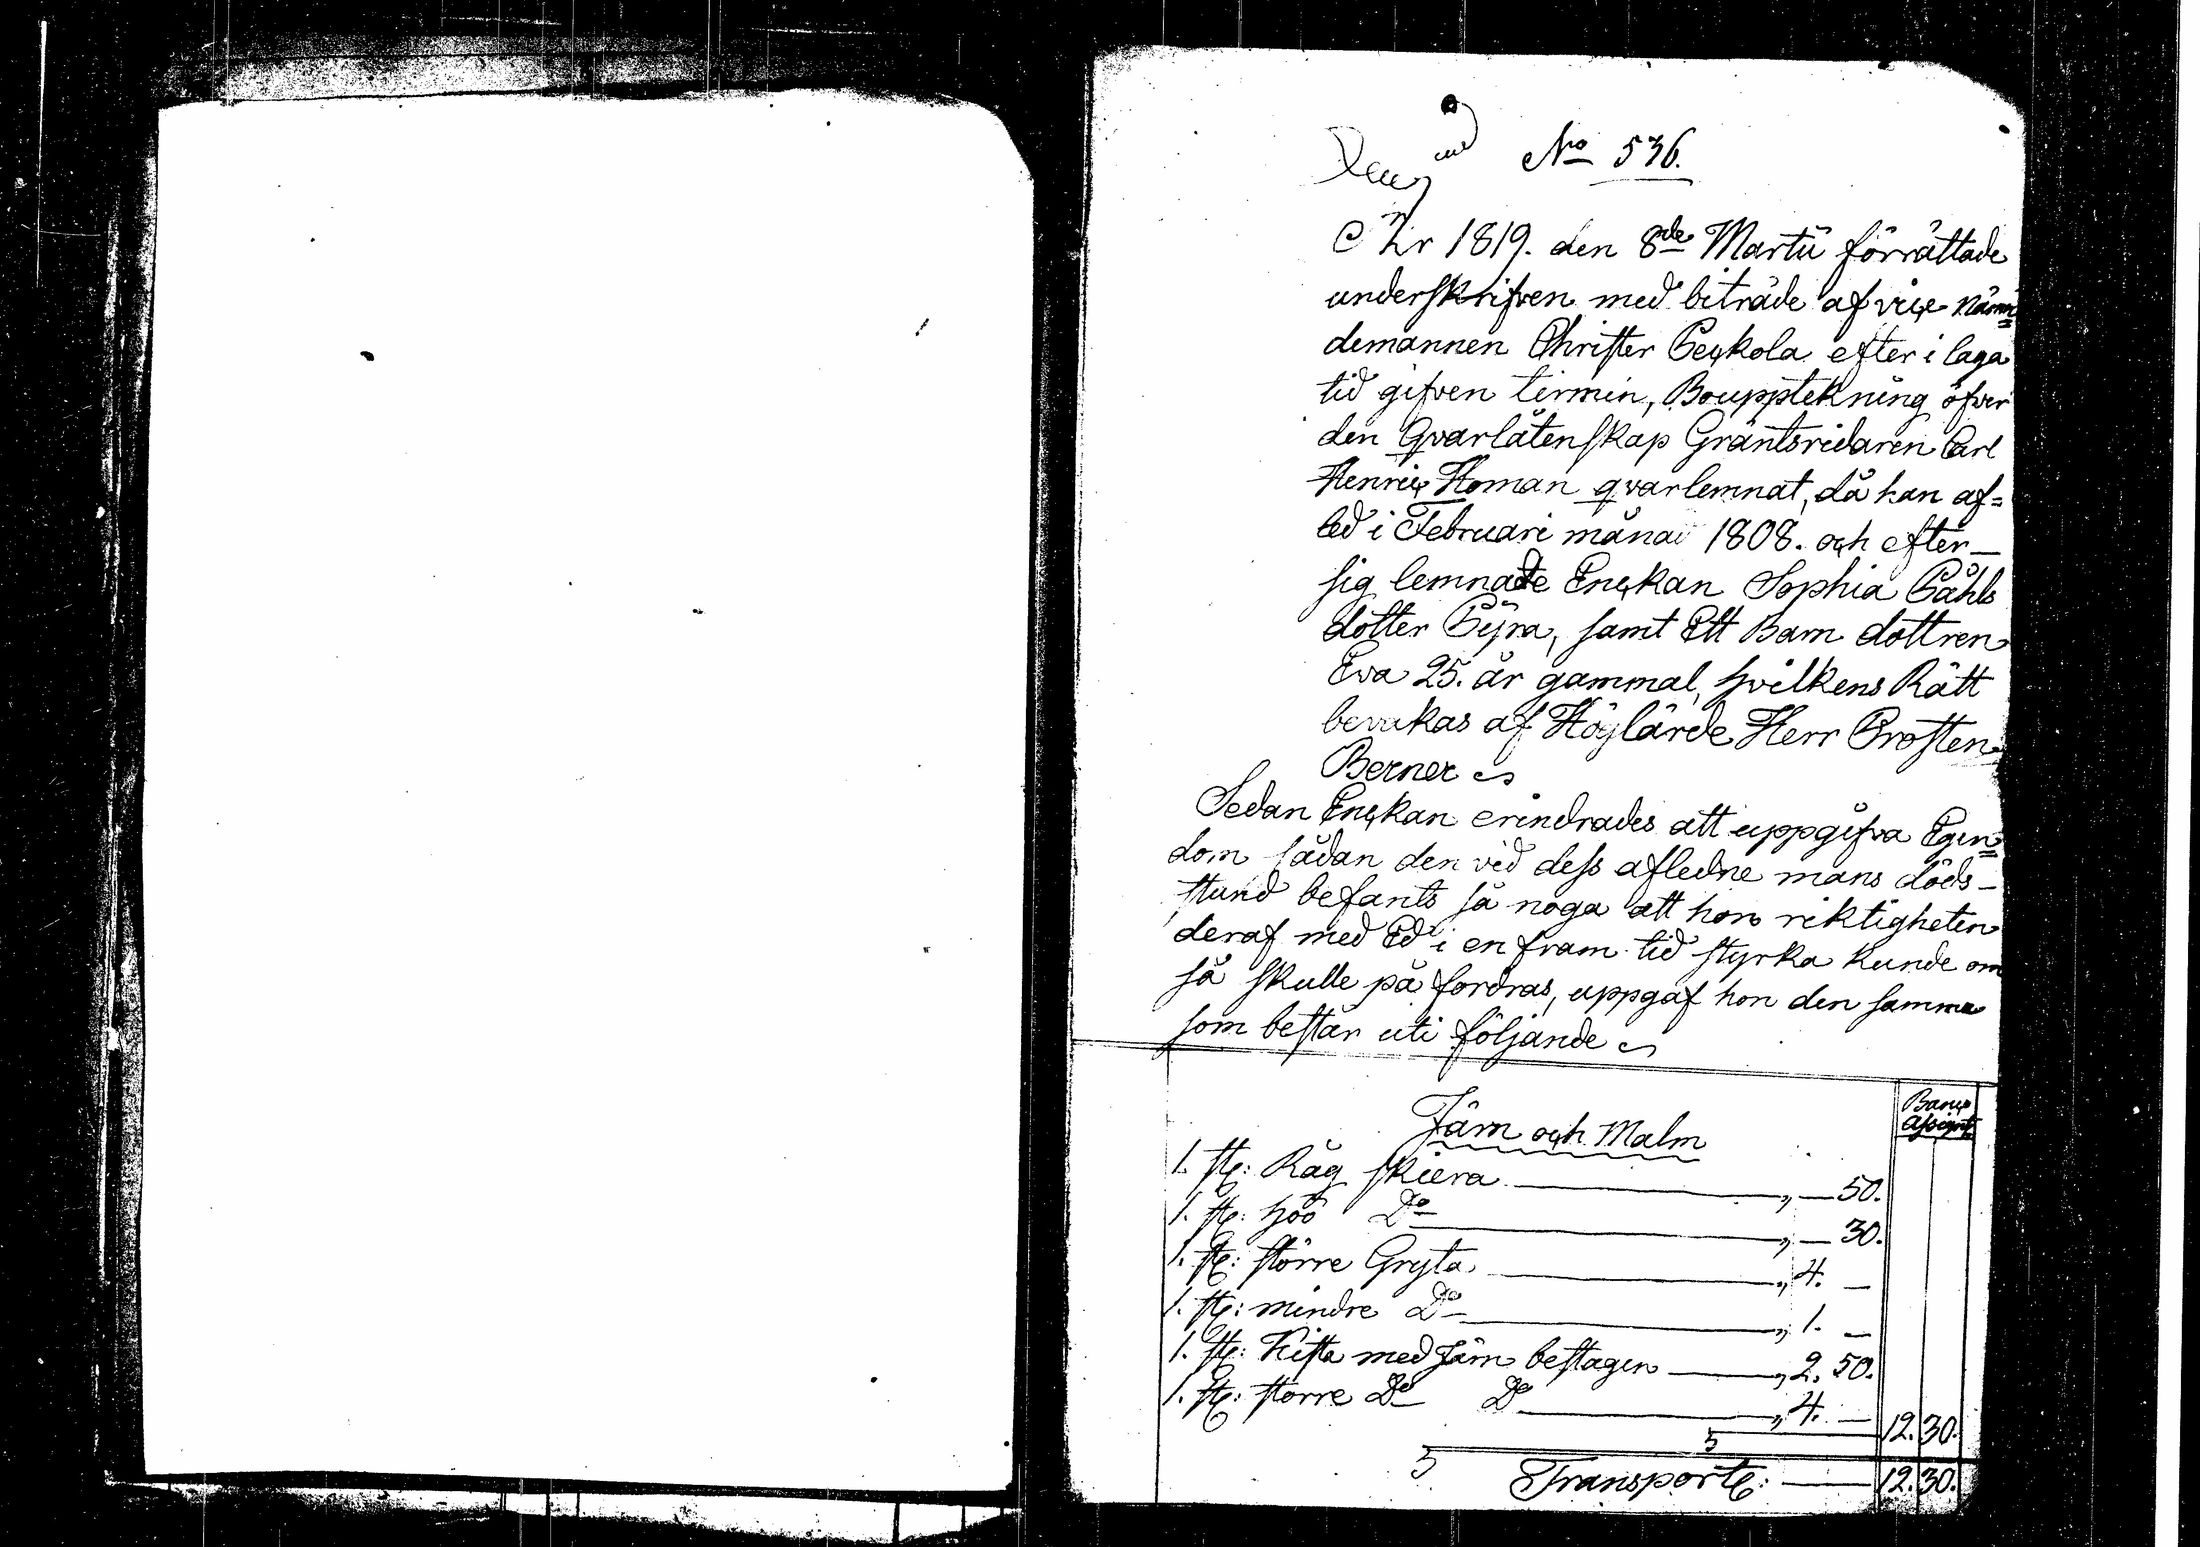 No 536.
År 1819. den 8de Martii förrättade
underskrifven med biträde af vice Näm=
demannen Christer Peckola efter i laga
tid gifven termin, Boupptekning öfver
den Qvarlåtenskap Gräntsridaren Carl
Henric Homan qvarlemnat, då han af=
led i Februari månad 1808. och efter
sig lemnade Enckan Sophia Påhls
dotter Pÿra, samt Ett Barn dottren
Eva 25. år gammal, hvilkens Rätt
bevakas af Höglärde Herr Prosten
Berner
Sedan Enckan erindrades att uppgifva Egen=
dom sådan den vid dess afledne mans döds-
stund befants så noga att hon riktigheten
deraf med Ed i en fram tid styrka kunde om
så skulle på fordras, uppgaf hon den samma
som består uti följande
Banco Assignt
Järn och Malm
1. st: Råg skiera „ — 50.
1. st: höö Do „ — 30.
1. st: större Gryta „ 4. —
1. st: mindre Do „ 1. —
1. st: Kista med Järn beslagen „ 2. 50.
1. st: större Do Do „ 4. — 12. 30.
Transport: 12. 30.